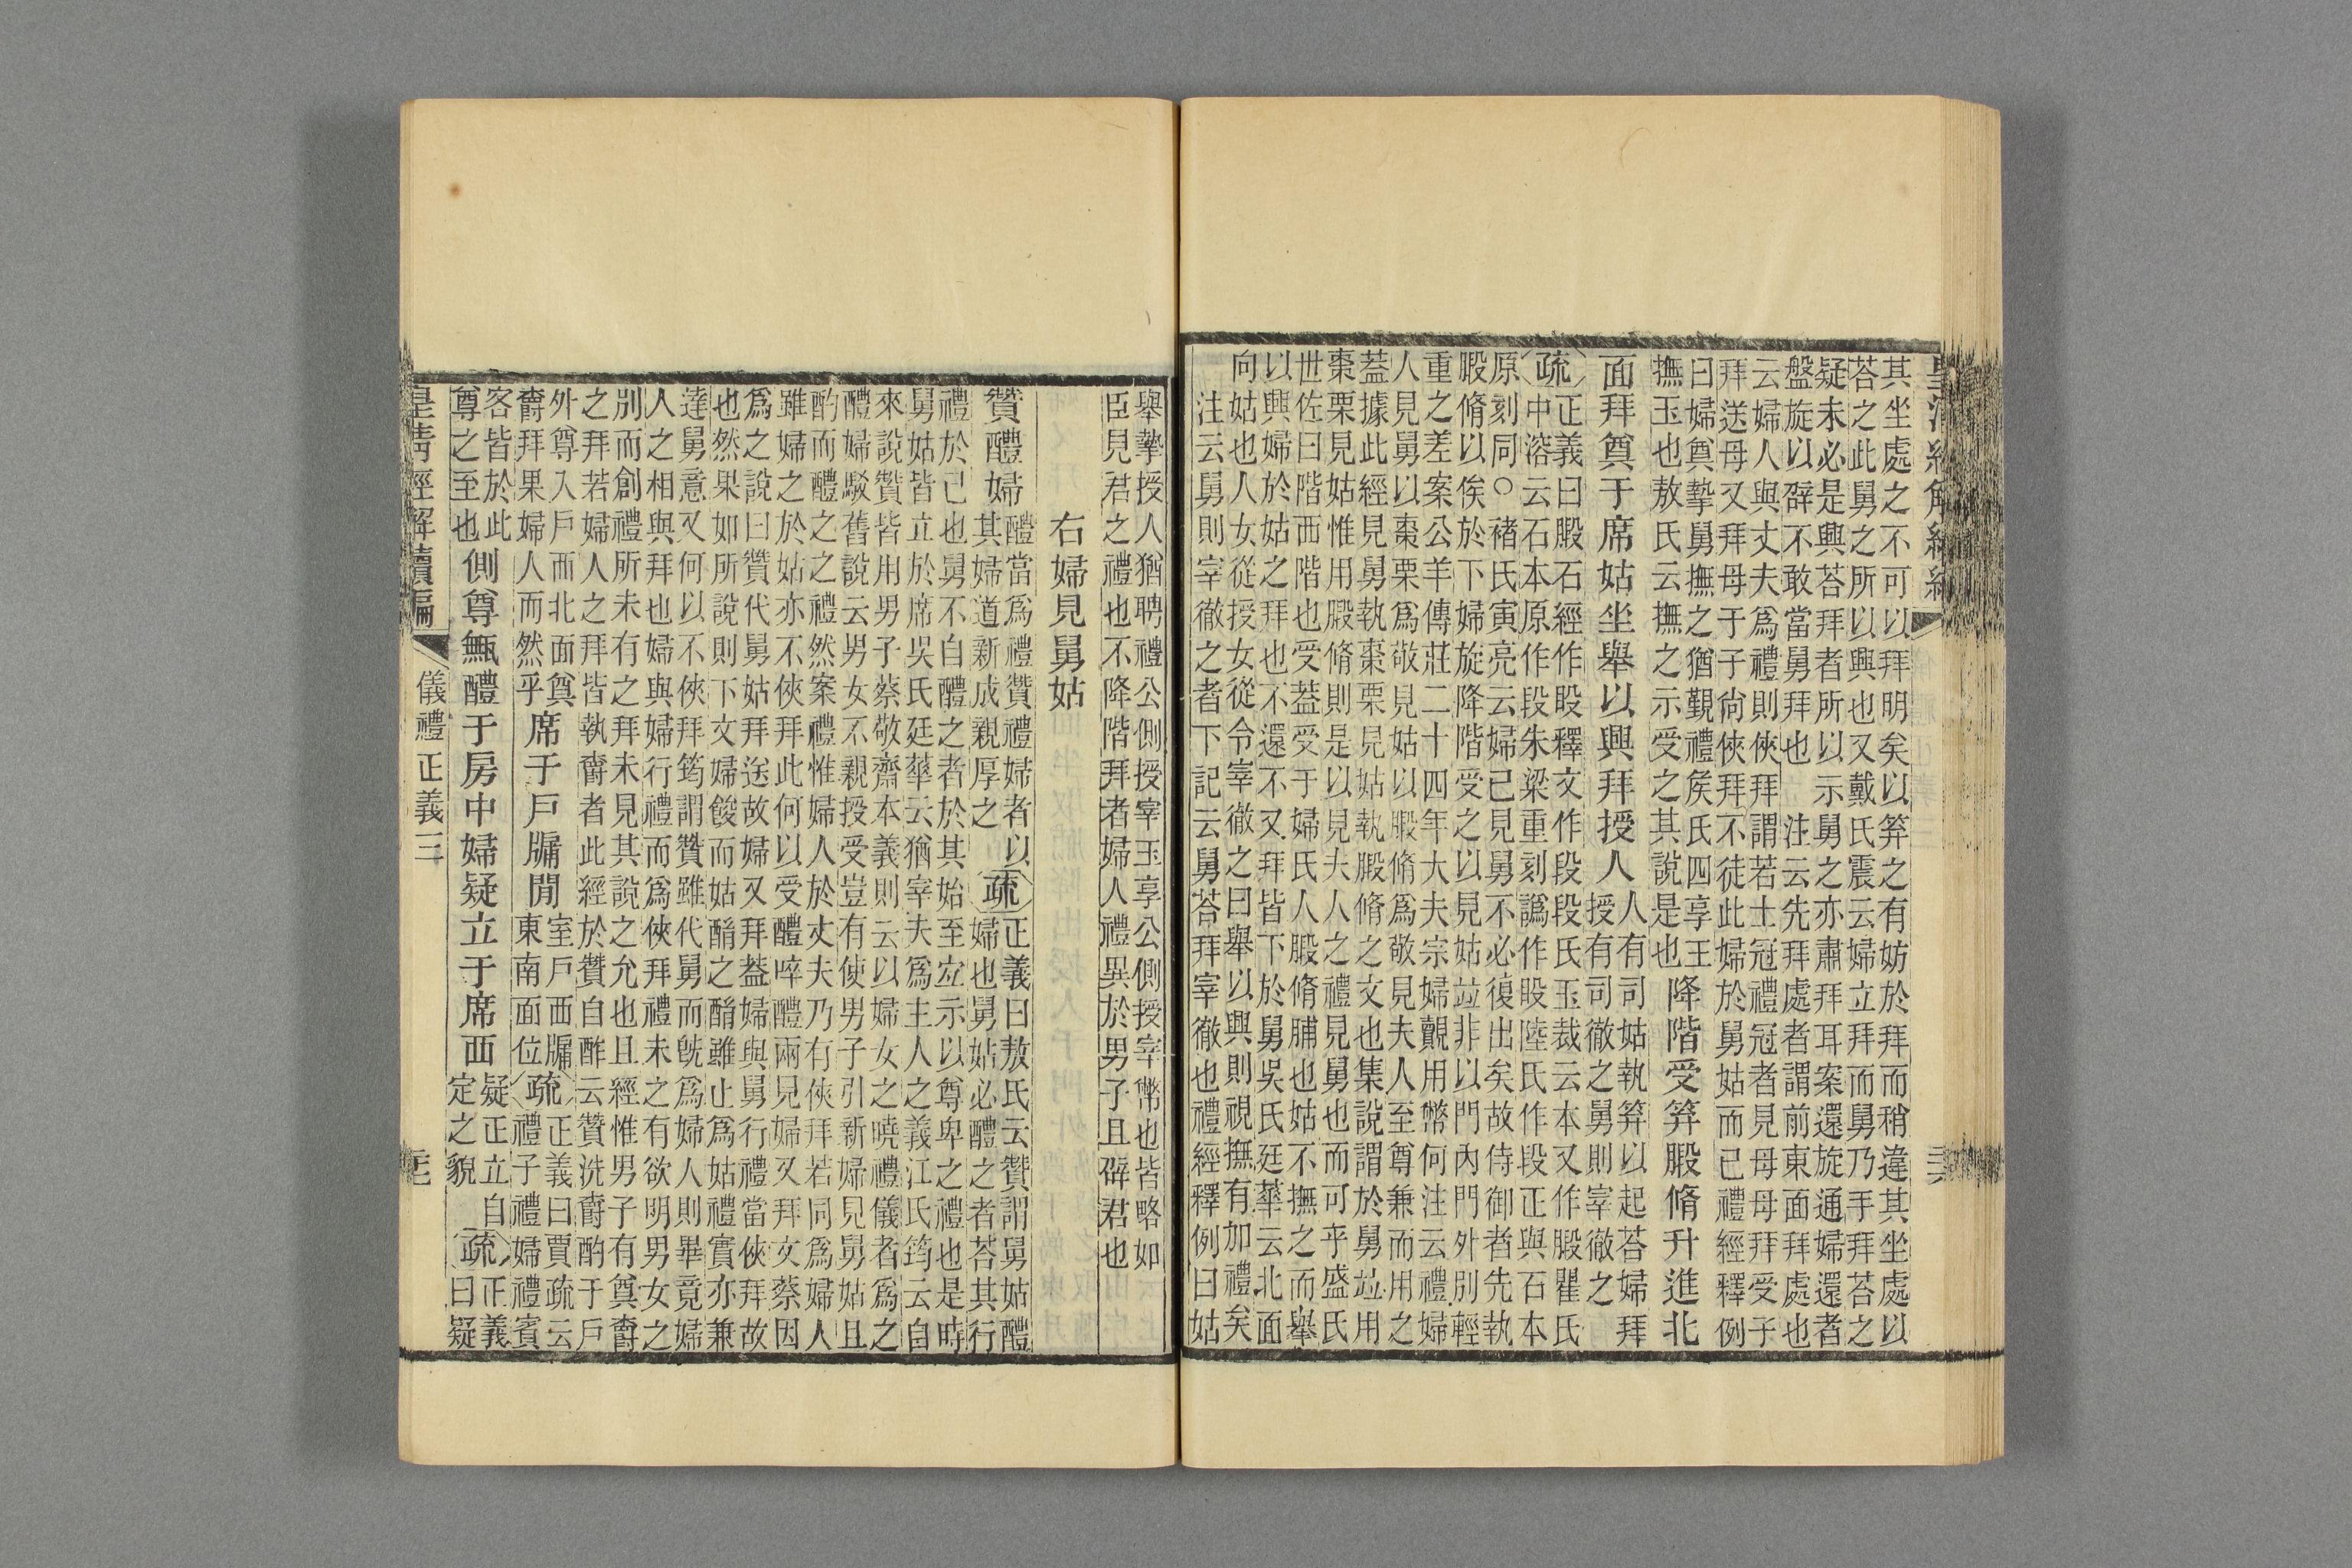 其坐處之不可以拜明矣以筓之有妨於拜而稍違其坐處以
荅之此舅之所以興也又戴氏震云婦立拜而舅乃手拜荅之
疑未必是興荅拜者所以示舅之亦肅拜耳案還旋通婦還者
盤旋以辟不敢當舅拜也 注云先拜處者謂前東面拜處也
云婦人與丈夫爲禮則俠拜謂若士冠禮冠者見母母拜受子
拜送母又拜母于子尙俠拜不徒此婦於舅姑而已禮經釋例
曰婦奠摯舅撫之猶覲禮矦氏四享王
撫玉也敖氏云撫之示受之其說是也
降階受笲腶脩升進北
面拜奠于席姑坐舉以興拜授人
人有司姑執笲以起荅婦拜
授有司徹之舅則宰徹之
疏
正義曰腶石經作股釋文作段段氏玉裁云本又作腶瞿氏
中溶云石本原作段朱梁重刻譌作股陸氏作段正與石本
原刻同○褚氏寅亮云婦已見舅不必復出矣故侍御者先執
腶脩以俟於下婦旋降階受之以見姑竝非以門內門外別輕
重之差案公羊傳莊二十四年大夫宗婦覿用幣何注云禮婦
人見舅以棗栗爲敬見姑以腶脩爲敬見夫人至尊兼而用之
蓋據此經見舅執棗栗見姑執腶脩之文也集說謂於舅竝用
棗栗見姑惟用腶脩則是以見夫人之禮見舅也而可乎盛氏
世佐曰階西階也受蓋受于婦氏人腶脩脯也姑不撫之而舉
以興婦於姑之拜也不還不又拜皆下於舅吳氏廷華云北面
向姑也人女從授女從令宰徹之曰舉以興則視撫有加禮矣
注云舅則宰徹之者下記云舅荅拜宰徹也禮經釋例曰姑
舉摯授人猶聘禮公側授宰玉享公側授宰幣也皆略如
臣見君之禮也不降階拜者婦人禮異於男子且辟君也
右婦見舅姑
贊醴婦
醴當爲禮贊禮婦者以
其婦道新成親厚之
疏
正義曰敖氏云贊謂舅姑醴
婦也舅姑必醴之者荅其行
禮於已也舅不自醴之者於其始至宜示以尊卑之禮也是時
舅姑皆立於席吳氏廷華云猶宰夫爲主人之義江氏筠云自
來說贊皆用男子蔡敬齋本義則云以婦女之曉禮儀者爲之
醴婦駁舊說云男女不親授受豈有使男子引新婦見舅姑且
酌而醴之之禮然案禮惟婦人於丈夫乃有俠拜若同爲婦人
雖婦之於姑亦不俠拜此何以受醴啐醴兩見婦又拜文蔡因
爲之說曰贊代舅姑拜送故婦又拜蓋婦與舅行禮當俠拜故
也然果如所說則下文婦餕而姑酳之酳雖止爲姑禮實亦兼
達舅意又何以不俠拜筠謂贊雖代舅而旣爲婦人則畢竟婦
人之相與拜也婦與婦行禮而爲俠拜禮未之有欲明男女之
別而創禮所未有之拜未見其說之允也且經惟男子有奠爵
之拜若婦人之拜皆執爵者此經於贊自酢云贊洗爵酌于戶
外尊入戶西北面奠
爵拜果婦人而然乎
席于戶牖閒
室戶西牖
東南面位
疏
正義曰賈疏云
禮子禮婦禮賓
客皆於此
尊之至也
側尊甒醴于房中婦疑立于席西
疑正立自
定之貌
疏
正義
曰疑
皇淸經解續編 儀禮正義三